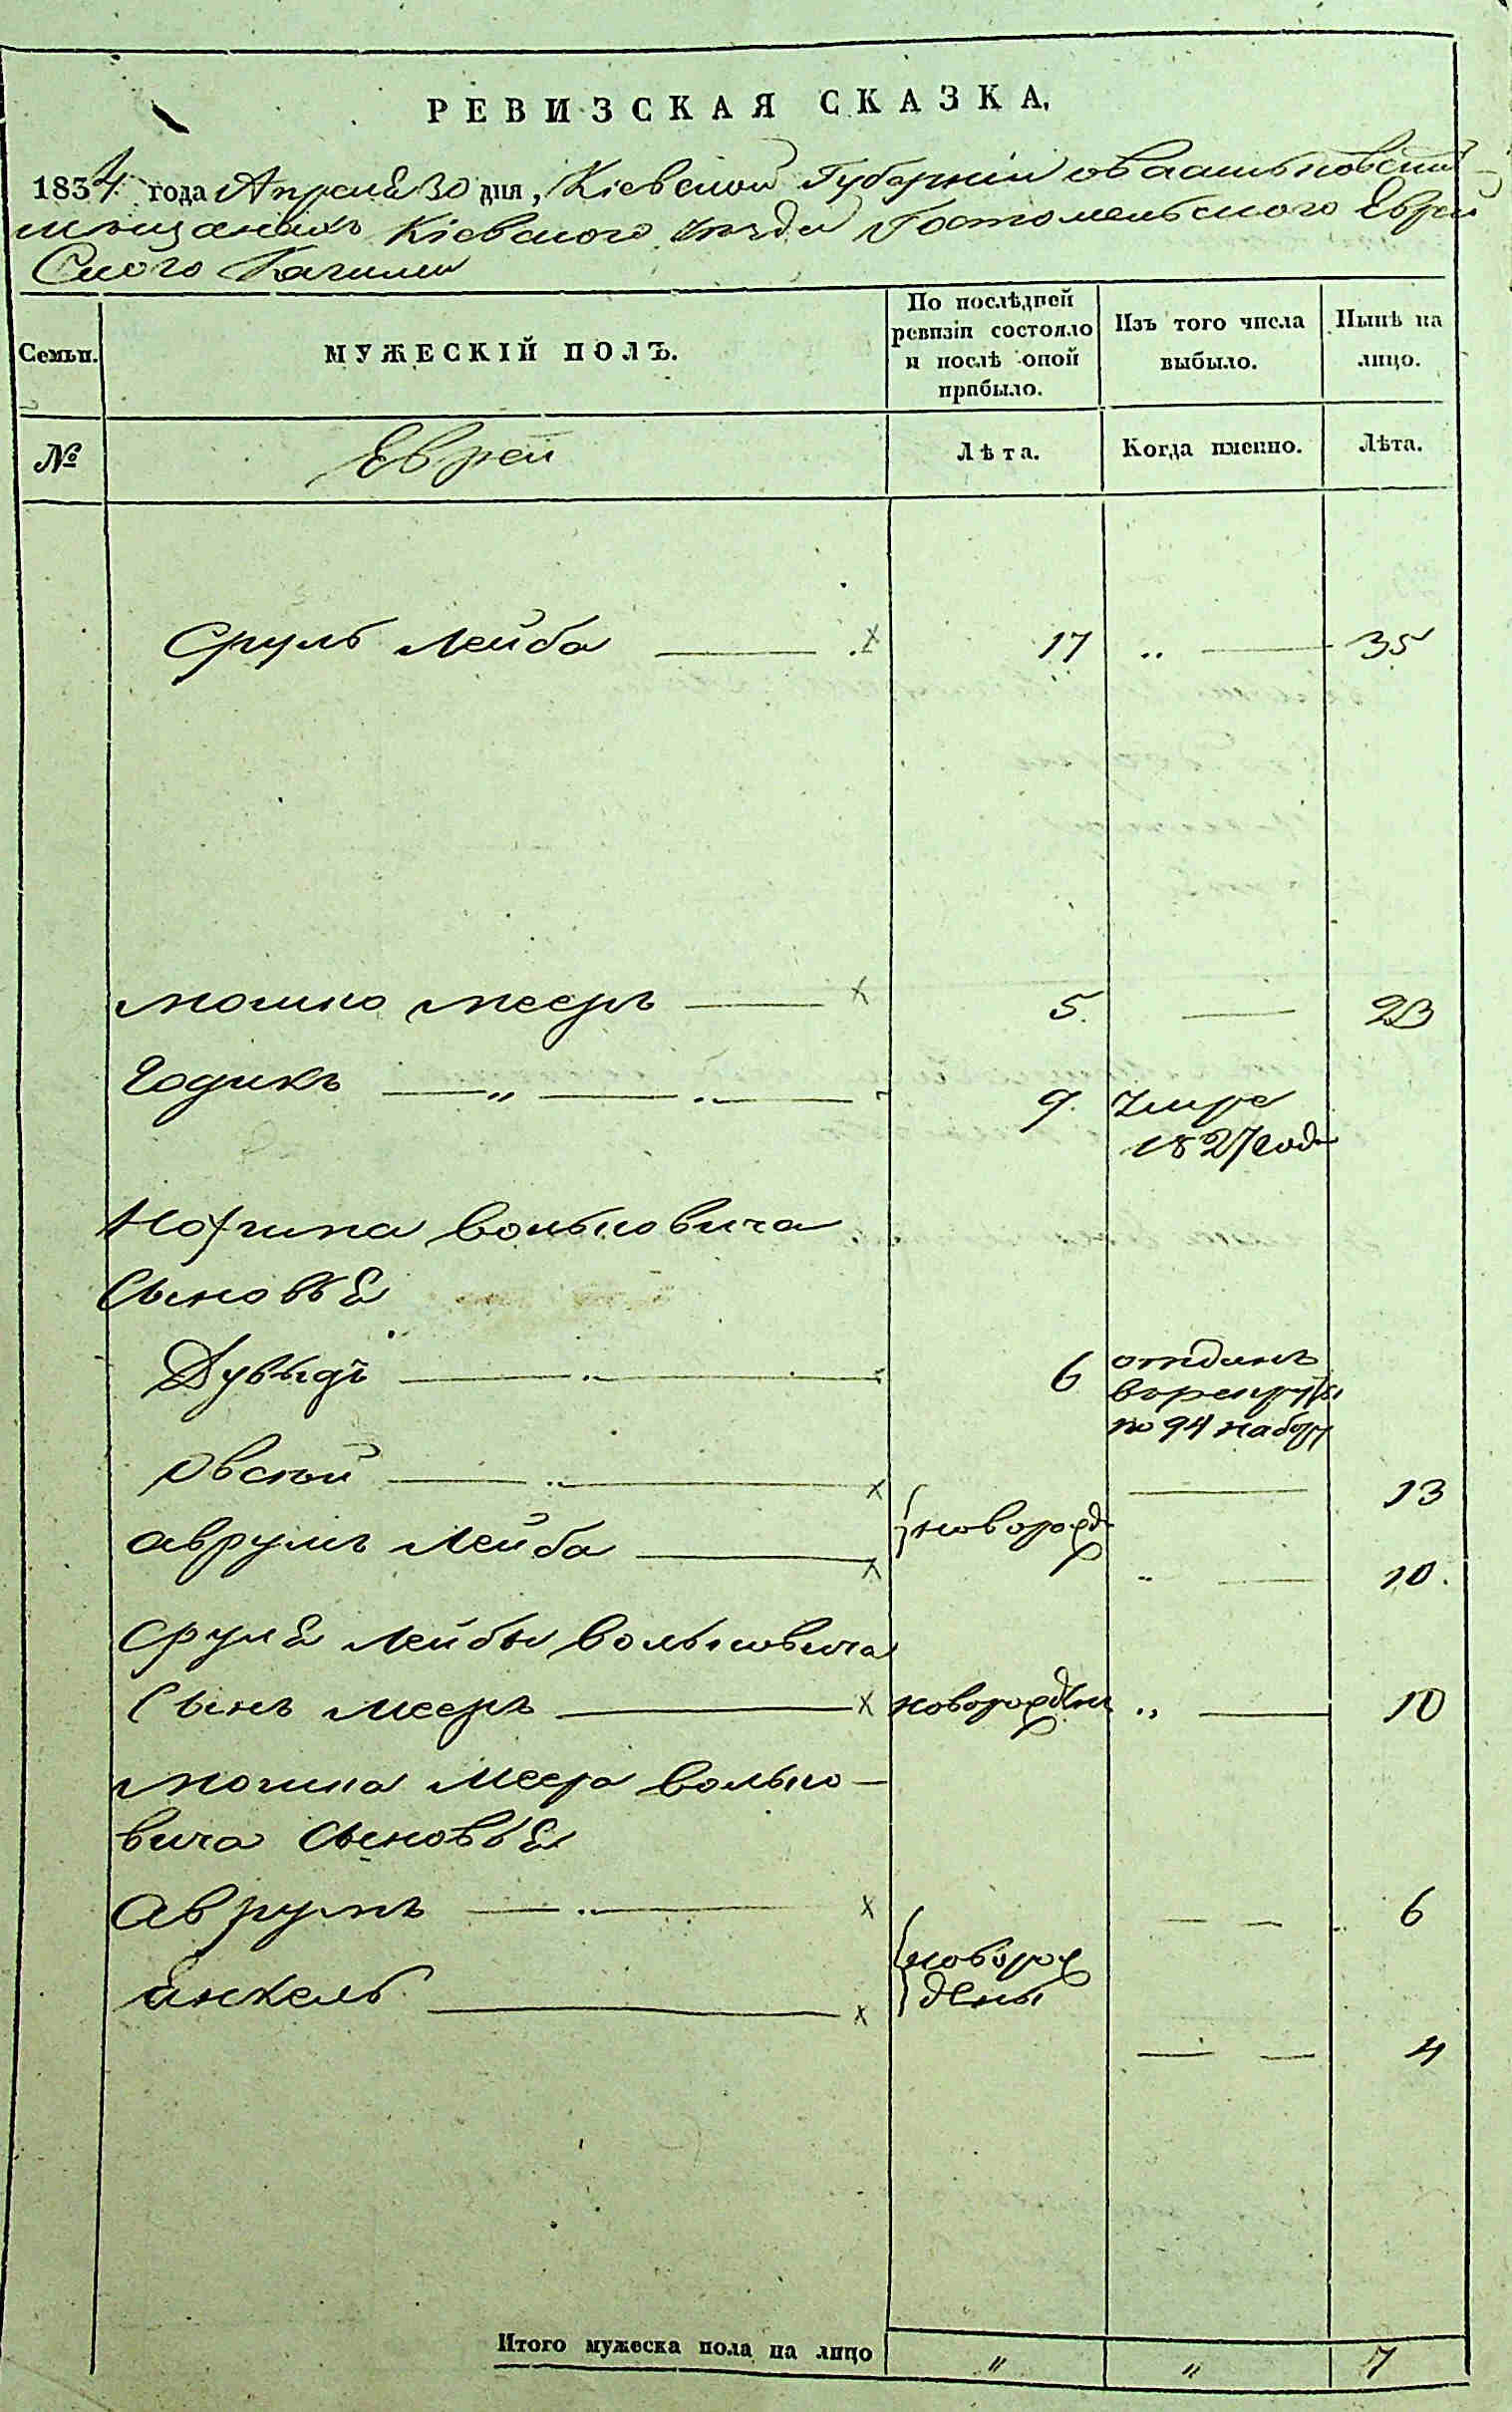 РЕВИЗСКАЯ СКАЗКА,
1834 года Апреля 30 дня, Кіевской Губерніи о васильковскихъ
мещанахъ Кіевского уезда Гостомельского Еврей
Ского Кагала
Семьи. МУЖЕСКІЙ ПОЛЪ. По послѣдней ревизіи состояло и послѣ оной прибыло. Изъ того числа выбыло. Нынѣ на лицо.
№ Евреи Лѣта. Когда именно. Лѣта.
Сруль Лейба 17 „ 35
Мошко Мееръ 5. 23
Юдикъ 9. умре
1827 года
Вольковича
Сыновья
Дувыдъ 6 отданъ
в рекруты
по 94 набору
Овсюй 13
Аврумъ Лейба новорожд 10.
Сруля Лейбы Вольковича
Сынъ Мееръ новорожден „ 10
Мошка Меера Волько-
вича Сыновья
Аврумъ 6
новорож
дены
Янкель 4
Итого мужеска пола на лицо „ „ 7